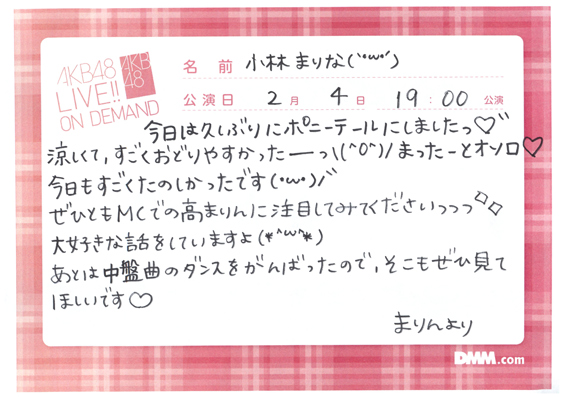 AKB48
LIVE!!
ON DEMAND
AKB
48
名 前 小林まりな(`･ω･´)
公演日 2月 4日 19:00 公演
今日は久しぶりにポニーテールにしましたっ♡
涼しくて、すごくおどりやすかったーっ\(^O^)/まったーとオソロ♡
今日もすごくたのしかったです(･ω･)ノ
ぜひともMCでの高まりんに注目してみてくださいっっっ
大好きな話をしていますよ(*^ω^*)
あとは中盤曲のダンスをがんばったので、そこもぜひ見て
ほしいです♡
まりんより
DMM.com